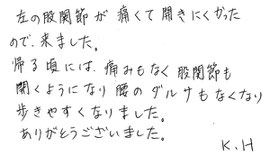 左の股関節が痛くて開きにくかった
ので、来ました。
帰る頃には、痛みもなく股関節も
開くようになり腰のダルサもなくなり
歩きやすくなりました。
ありがとうございました。
K.H